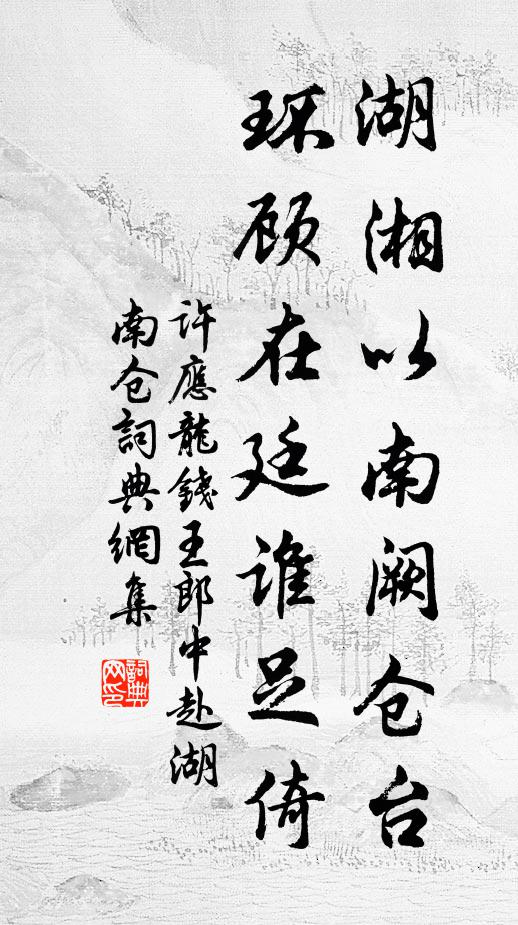 湖湘以南阙仓台
环顾在廷谁足倚
许應龍錢王郎中赴湖
南仓詞典網集
詞典网印